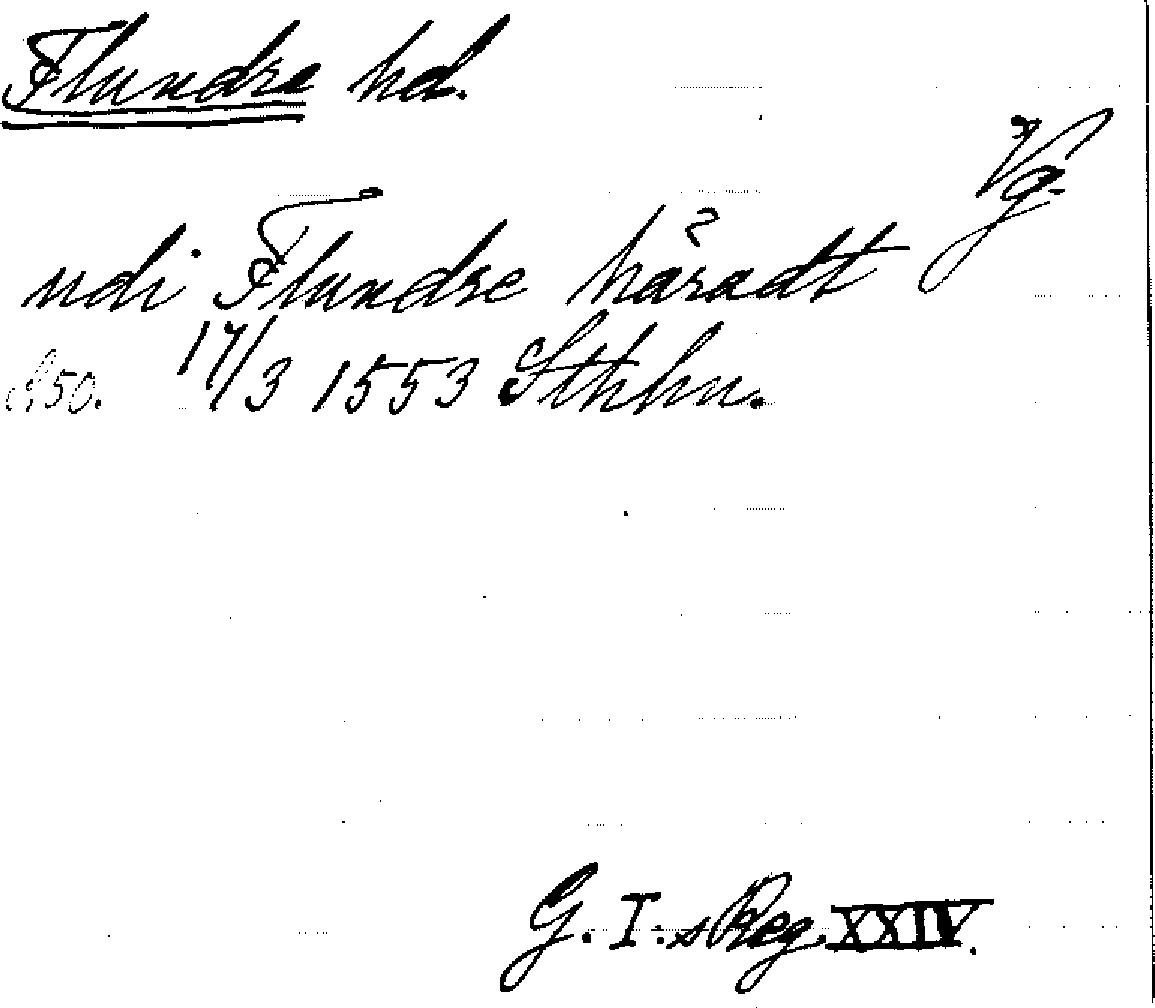 Flundre hd.
Vg.
udi Flundre håradt
17/3 1553 Sthhm.
G. I:s Reg. XXIV.